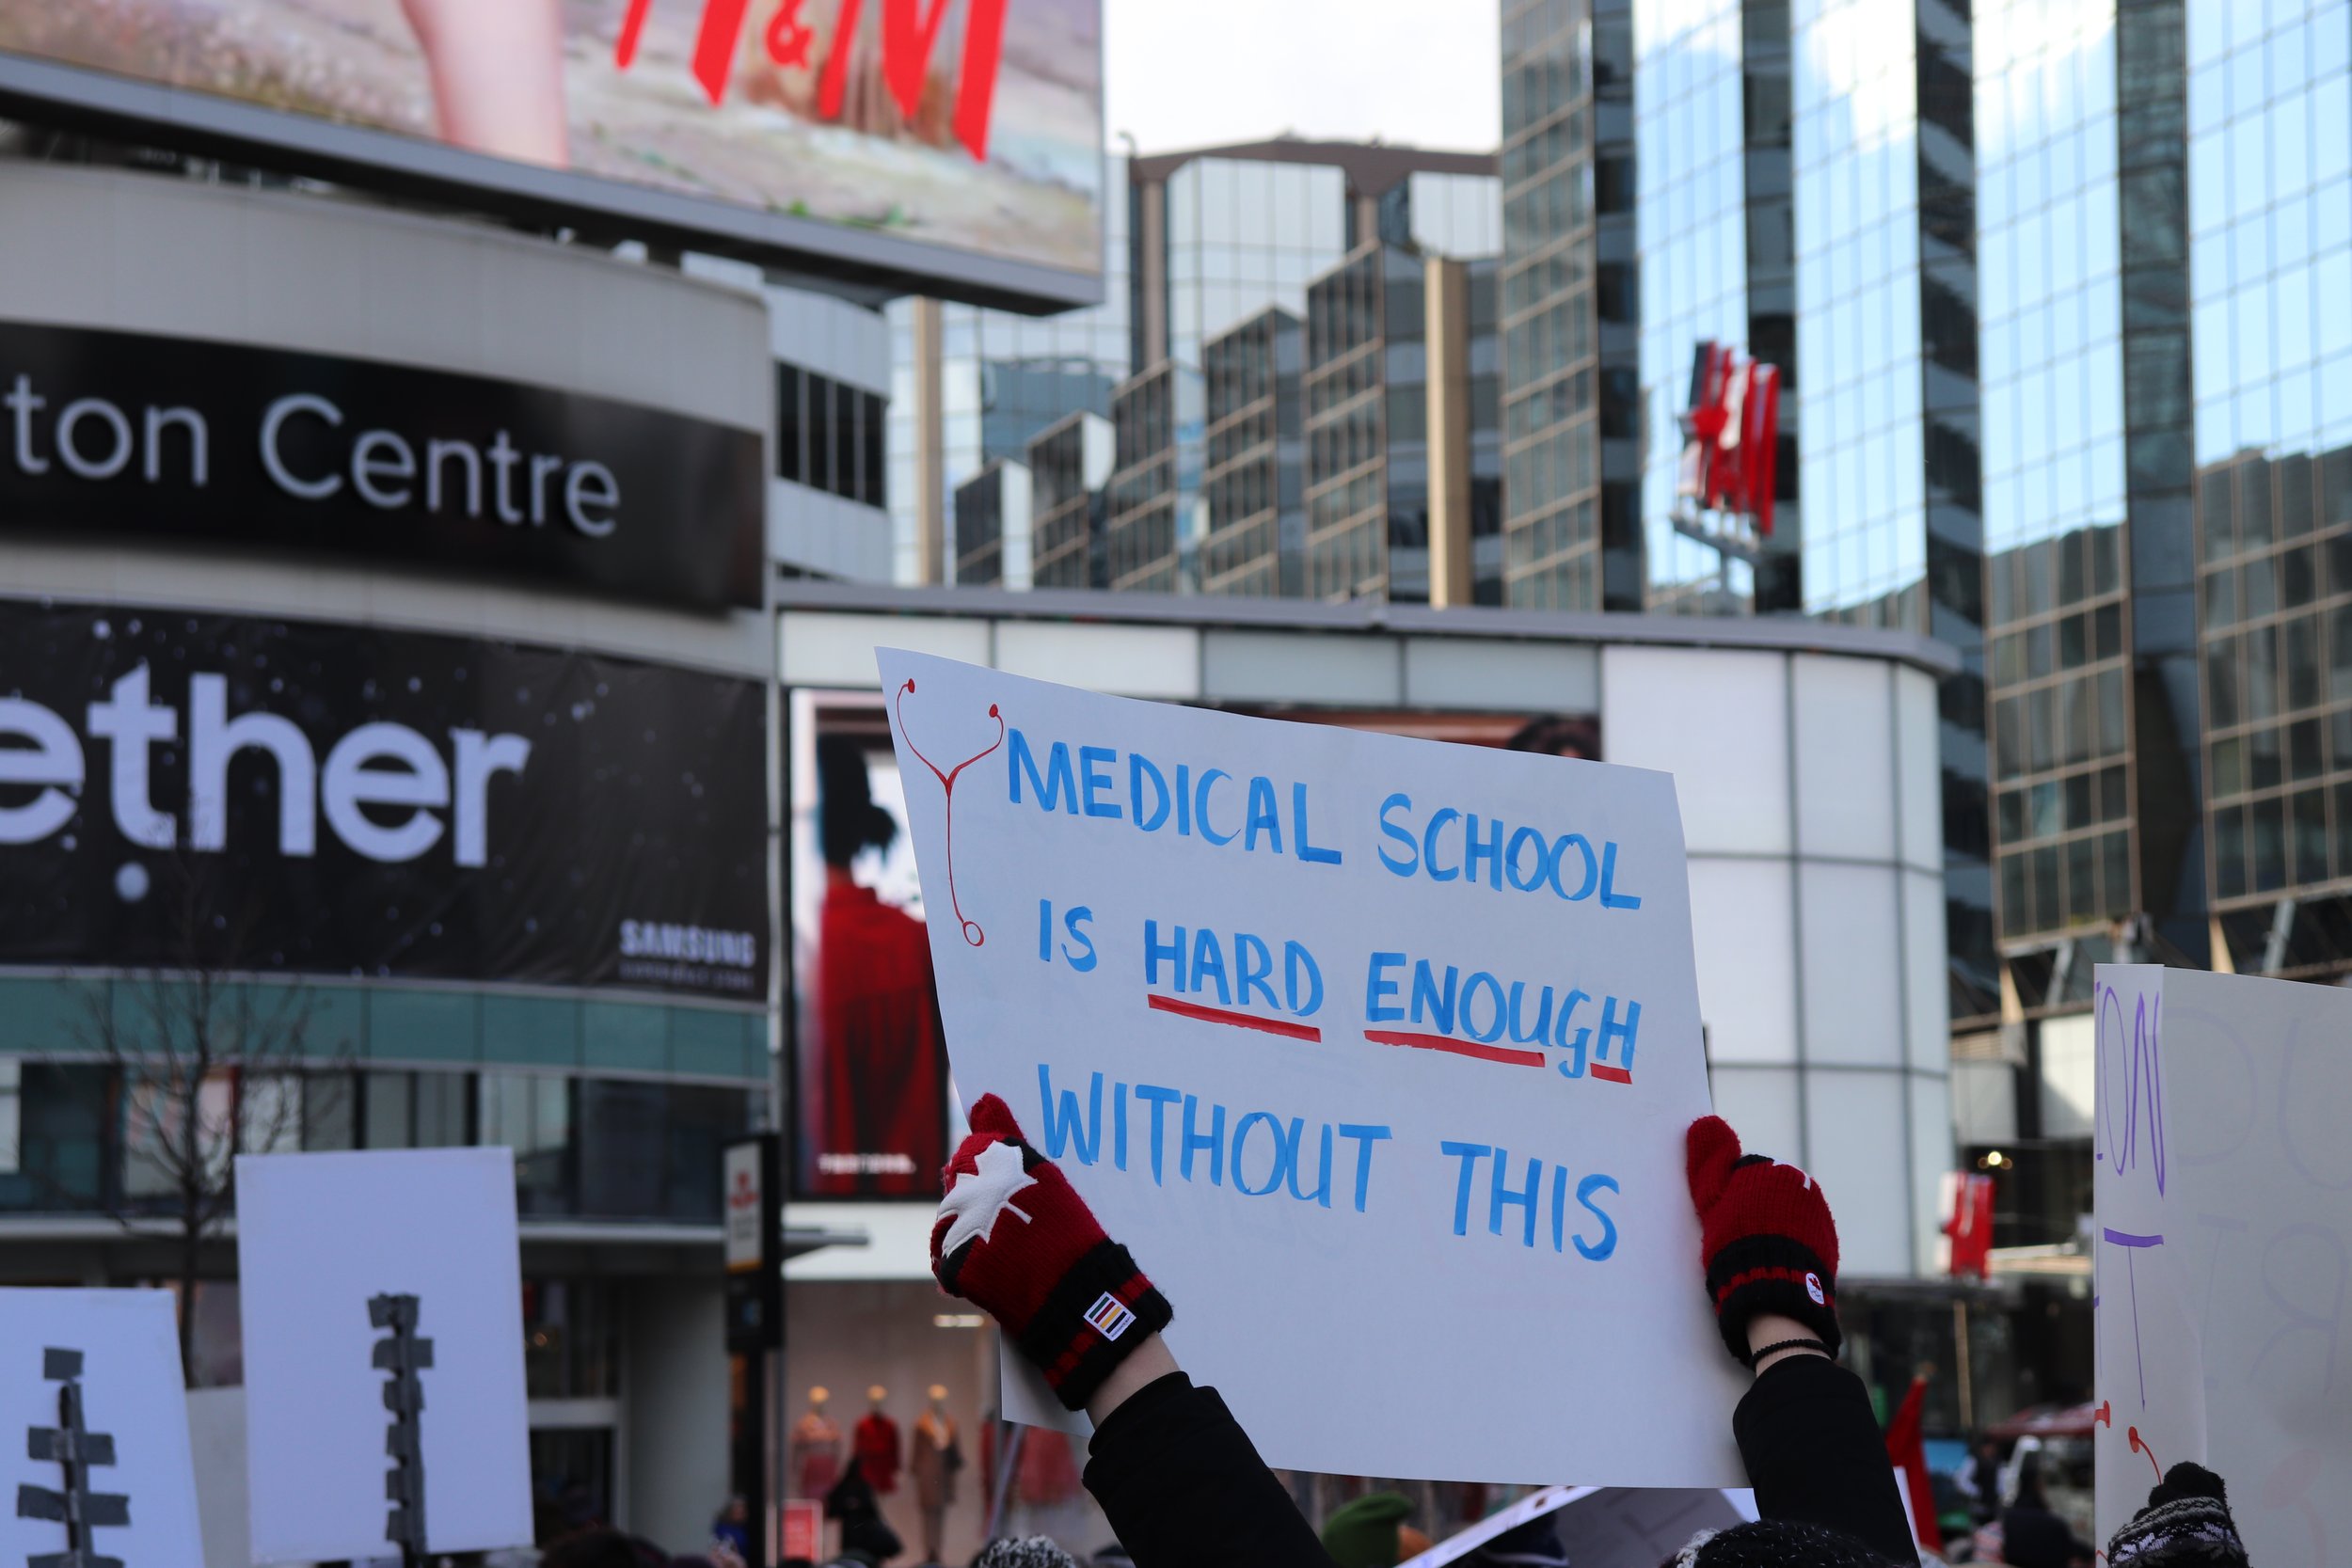 H&M
ton Centre
ether
SAMSUNG
MEDICAL SCHOOL
IS HARD ENOUGH
WITHOUT THIS
ION
T